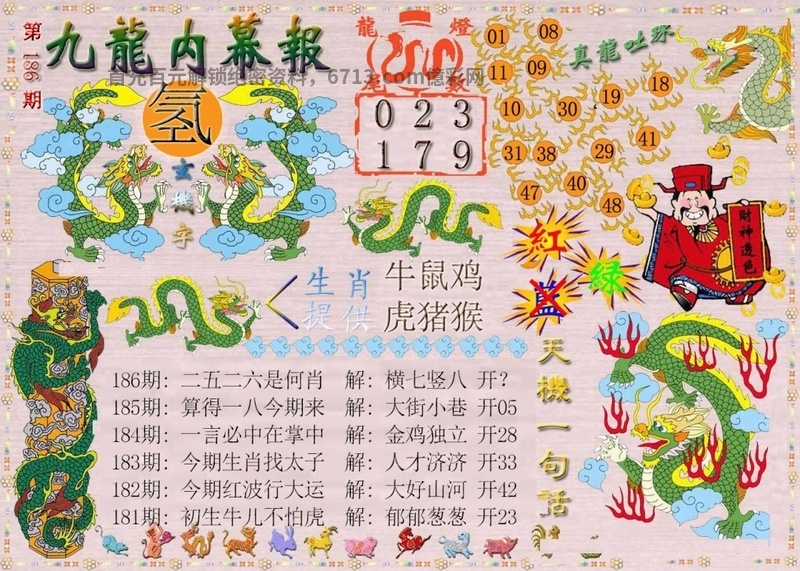 第186期
九龍内幕報
首充百元解锁绝密资料，6713.com億彩网
氢
玄機字
龍燈
尾數
0 2 3
1 7 9
真龍吐珠
01 08
11 09
10 30 19 18
31 38 29 41
47 40 48
紅
藍
綠
財神透色
生肖
提供
牛鼠鸡
虎猪猴
186期: 二五二六是何肖 解: 横七竖八 开?
185期: 算得一八今期来 解: 大街小巷 开05
184期: 一言必中在掌中 解: 金鸡独立 开28
183期: 今期生肖找太子 解: 人才济济 开33
182期: 今期红波行大运 解: 大好山河 开42
181期: 初生牛儿不怕虎 解: 郁郁葱葱 开23
天機一句話